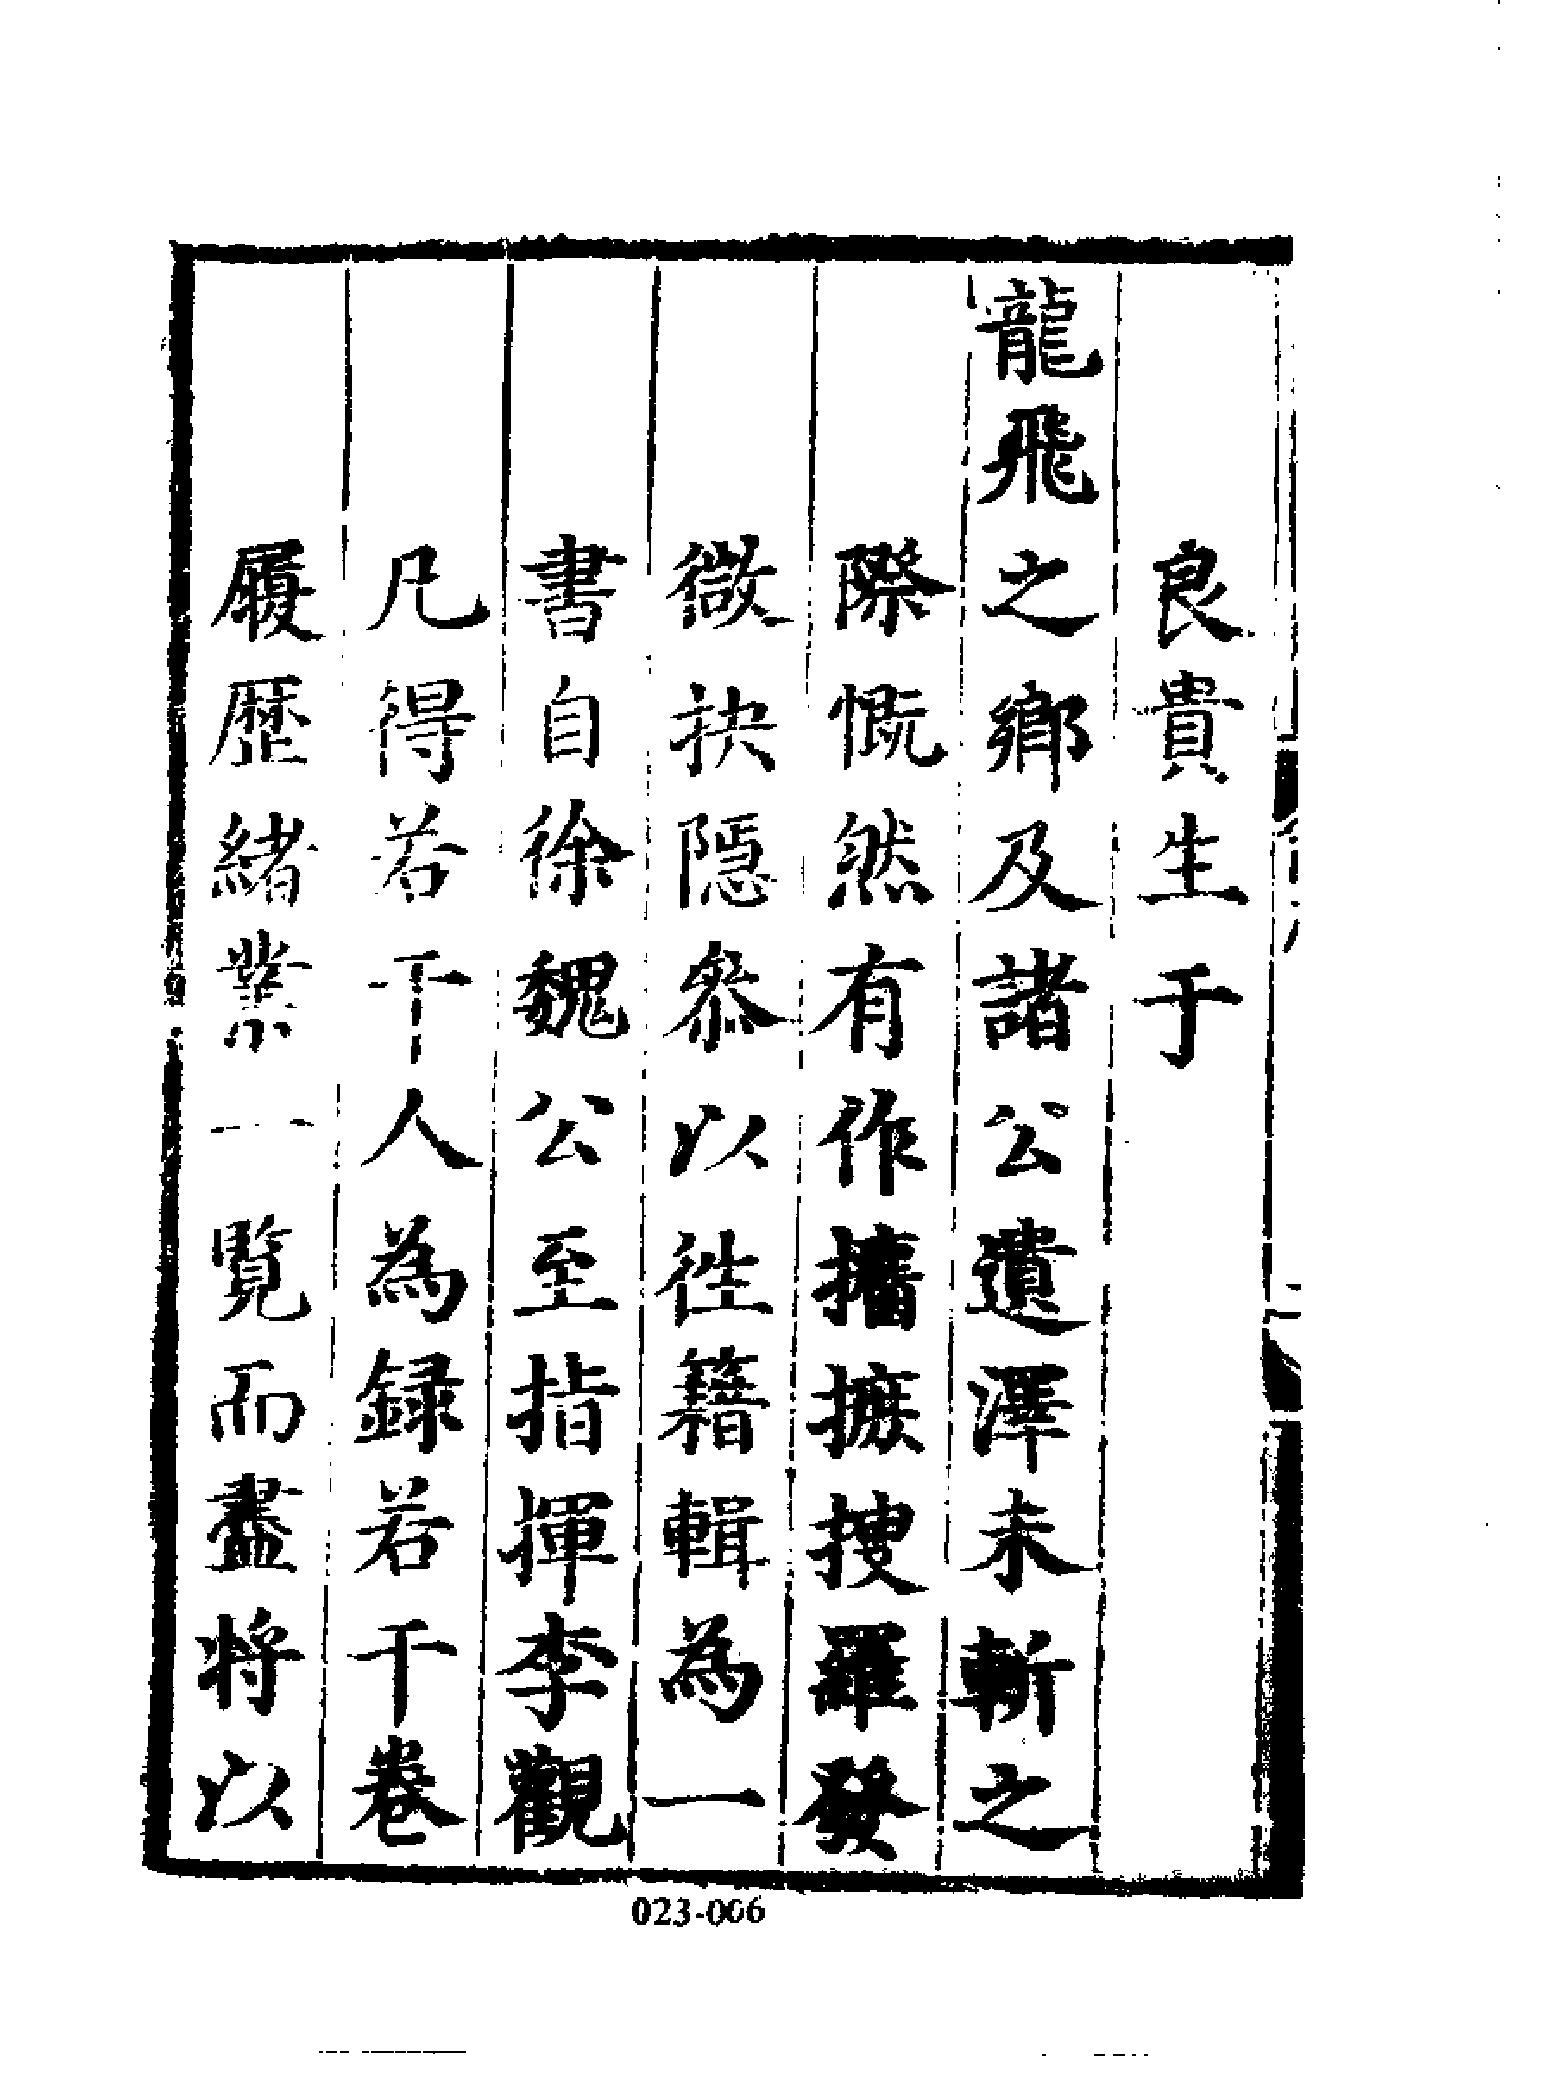 良貴生于
龍飛之鄉及諸公遺澤未斬之
際慨然有作攟摭搜羅發
微抉隱叅以徃籍輯為一
書自徐魏公至指揮李觀
凡得若干人為録若干卷
履歴緒業一覽而盡将以
023-006